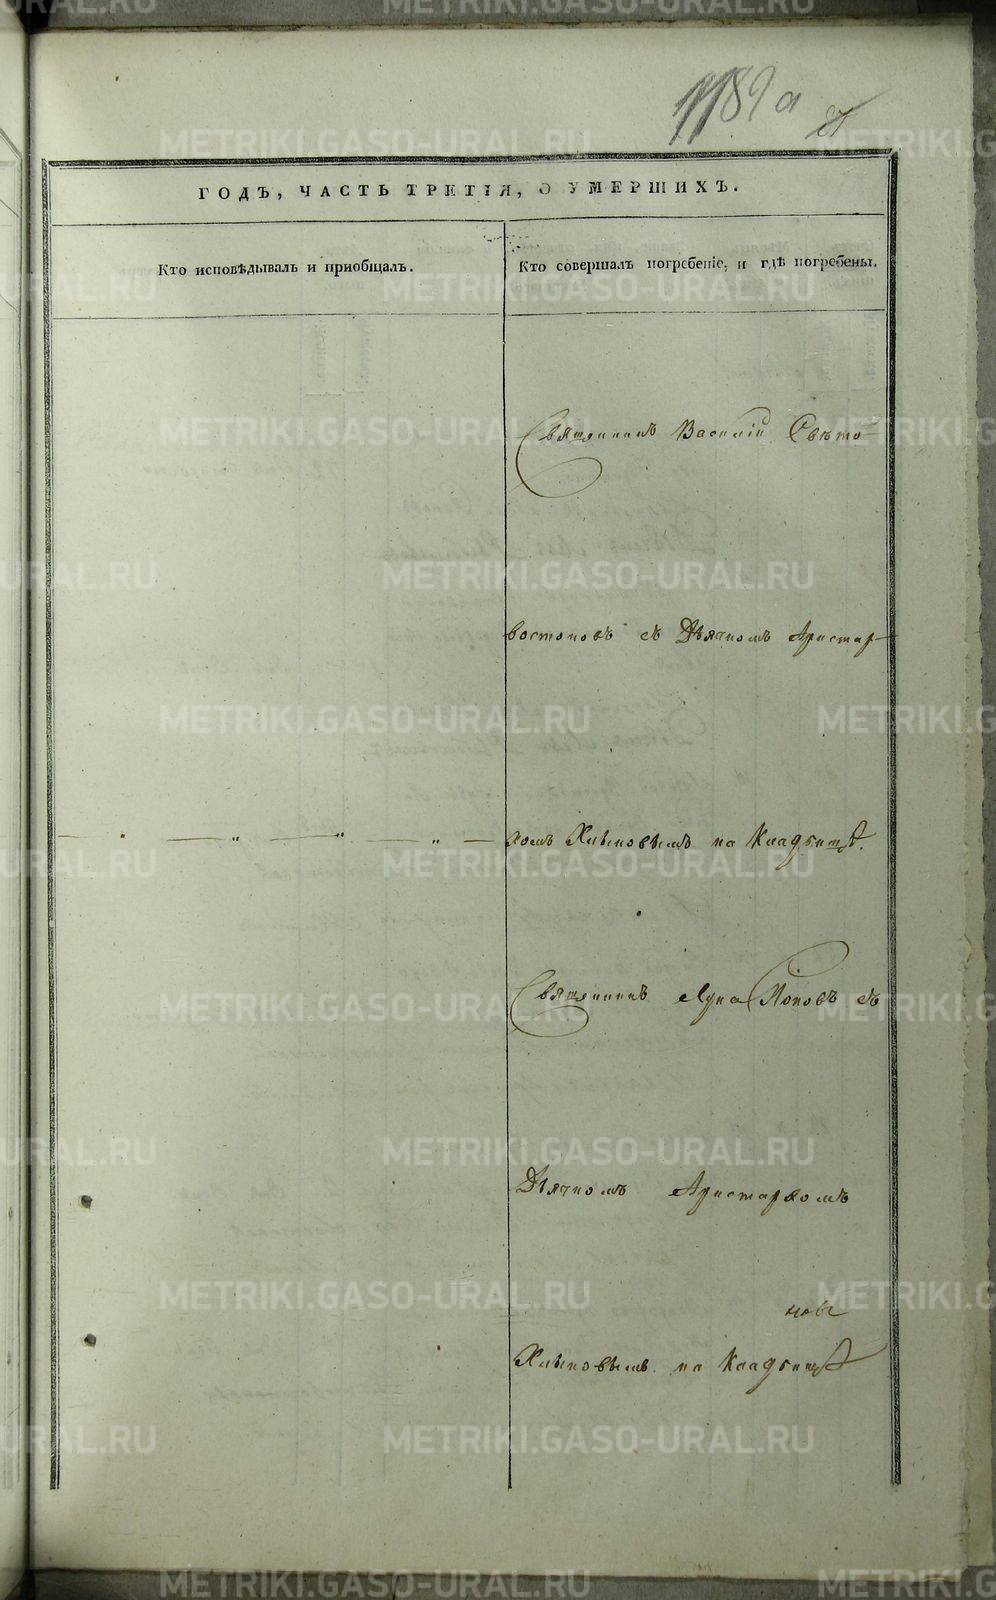 1189 а
87
ГОДЪ, ЧАСТЬ ТРЕТІЯ, О УМЕРШИХЪ.
Кто исповѣдывалъ и приобщалъ.
Кто совершалъ погребеніе, и гдѣ погребены.
Священникъ Василій Свѣто-
востоковъ съ Дьячкомъ Аристар-
хомъ Хлыновымъ на Кладбищѣ.
Священникъ Лука Поповъ съ
Дьячкомъ Аристархомъ
Хлыновымъ на Кладбищѣ
METRIKI.GASO-URAL.RU